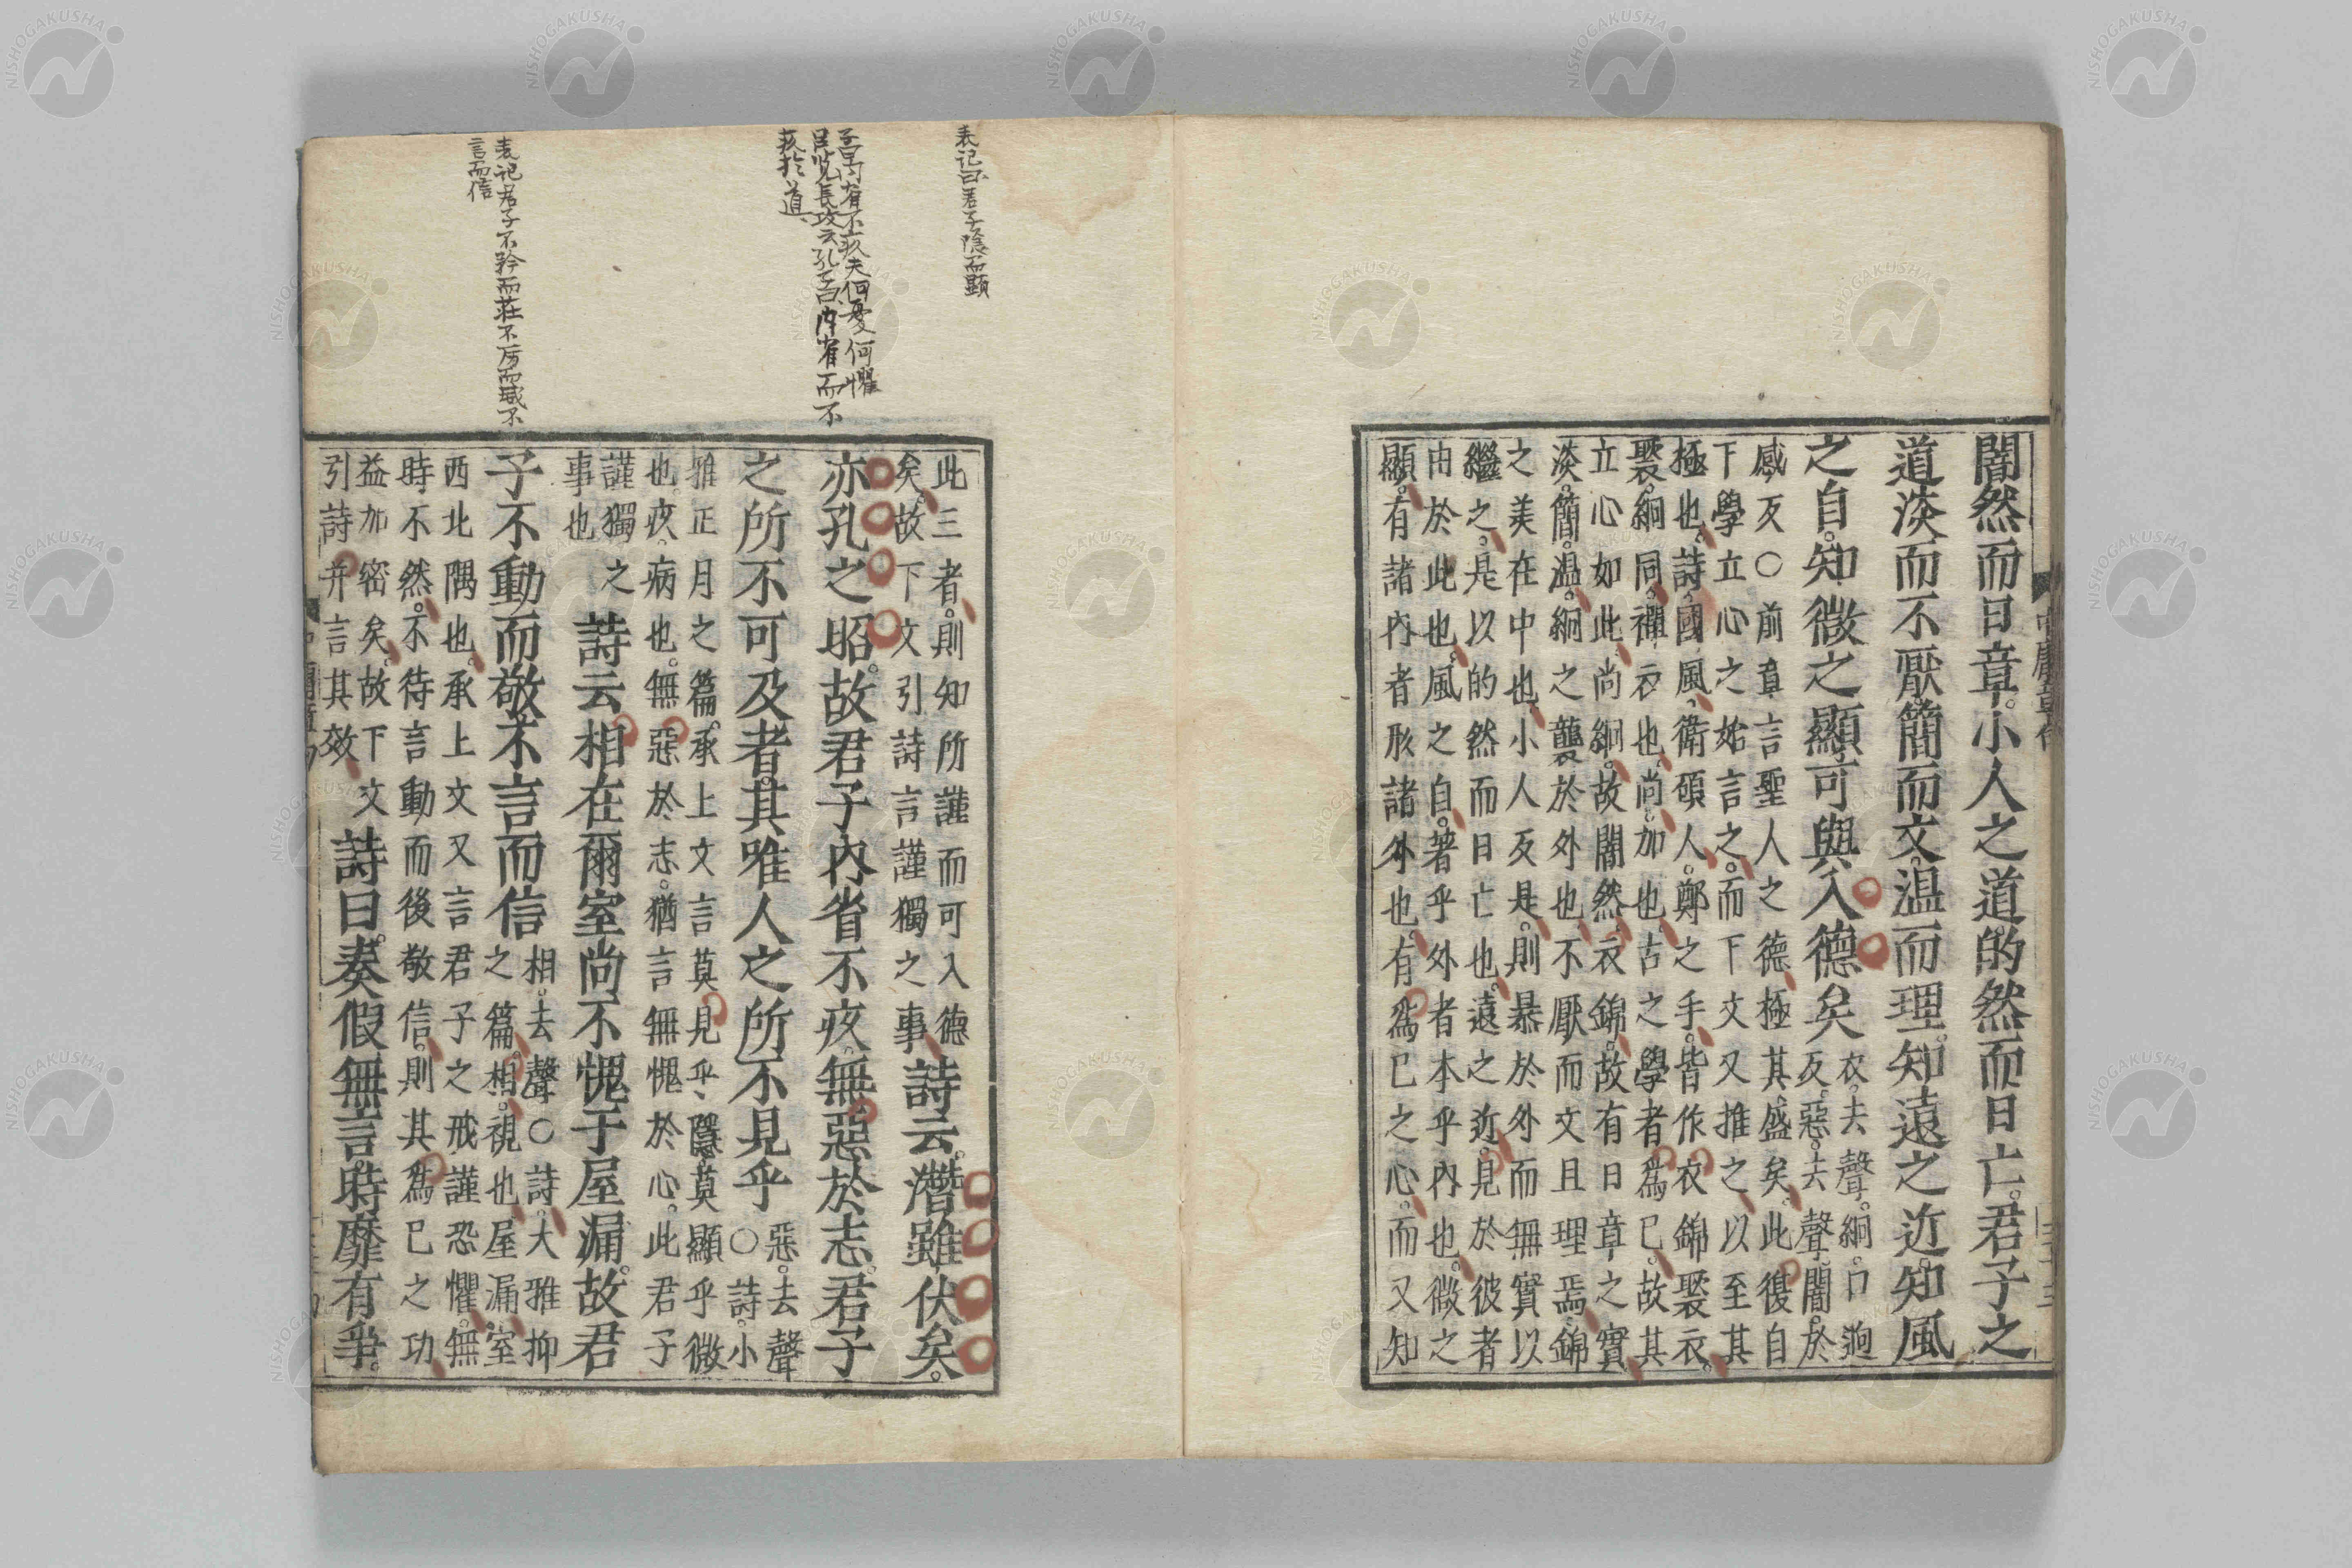 闇然而日章。小人之道的然而日亡。君子之
道淡而不厭簡而文温而理。知遠之近知風
之自。知微之顯可與入德矣
衣。去聲。絅。口逈
反。惡。去聲。闇。於
感反〇前章言聖人之德極其盛矣。此復自
下學立心之始言之。而下文又推之以至其
極也。詩。國風。衛碩人。鄭之手。皆作衣錦褧衣。
褧。絅同。襌衣也。尚。加也。古之學者爲已。故其
立心如此。尚絅。故闇然。衣錦。故有日章之實
淡。簡。温。絅之襲於外也。不厭而文且理焉。錦
之美在中也。小人反是。則暴於外而無實以
繼之。是以的然而日亡也。遠之近。見於彼者
由於此也。風之自。著乎外者本乎內也。微之
顯。有諸內者形諸外也。有爲已之心。而又知
此三者。則知所謹而可入德
矣。故下文引詩言謹獨之事
詩云。潛雖伏矣。
亦孔之昭。故君子內省不疚。無惡於志。君子
之所不可及者。其唯人之所不見乎
惡。去聲
〇詩。小
雅正月之篇。承上文言莫見乎隱。莫顯乎微
也。疚。病也。無惡於志。猶言無愧於心。此君子
謹獨之
事也
詩云相在爾室尚不愧于屋漏。故君
子不動而敬不言而信
相。去聲〇詩。大雅抑
之篇。相。視也。屋漏。室
西北隅也。承上文又言君子之戒謹恐懼。無
時不然。不待言動而後敬信。則其爲已之功
益加密矣。故下文
引詩并言其效
詩曰。奏假無言。時靡有爭。
表记曰君子隐而顕
子曰内省不疚夫何憂何懼
吕览長攻云孔子曰内省而不
疚於道
表记君子不矜而莊不厉而威不
言而信
中庸章句